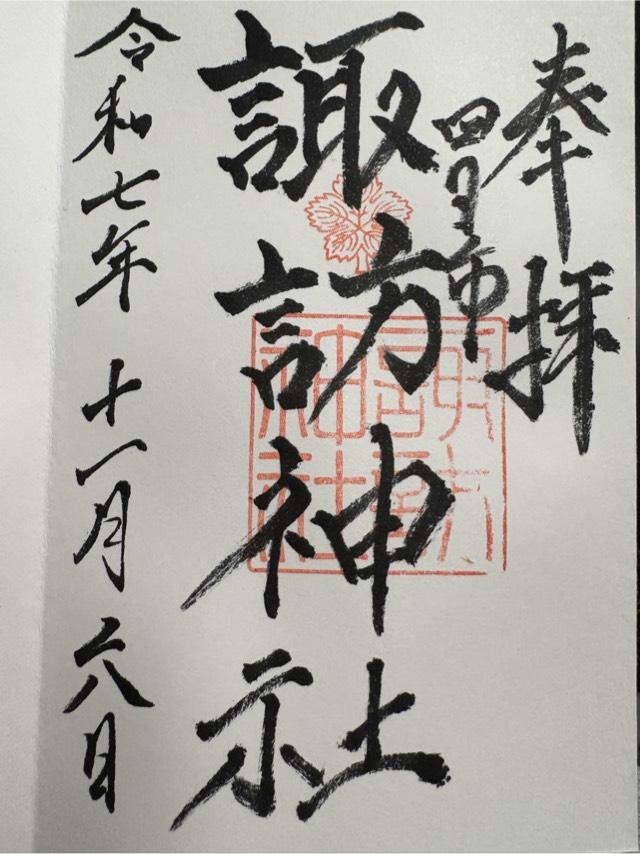 奉拝
四日市
諏訪神社
諏訪
神社
令和七年 十一月 六日